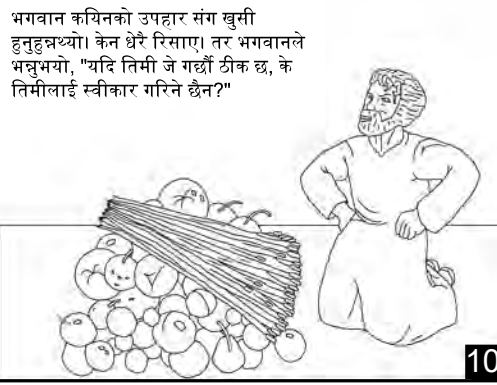 भगवान कयिनको उपहार संग खुसी
हुनुहुन्नथ्यो। केन धेरै रिसाए। तर भगवानले
भन्नुभयो, "यदि तिमी जे गर्छौं ठीक छ, के
तिमीलाई स्वीकार गरिने छैन?"
10